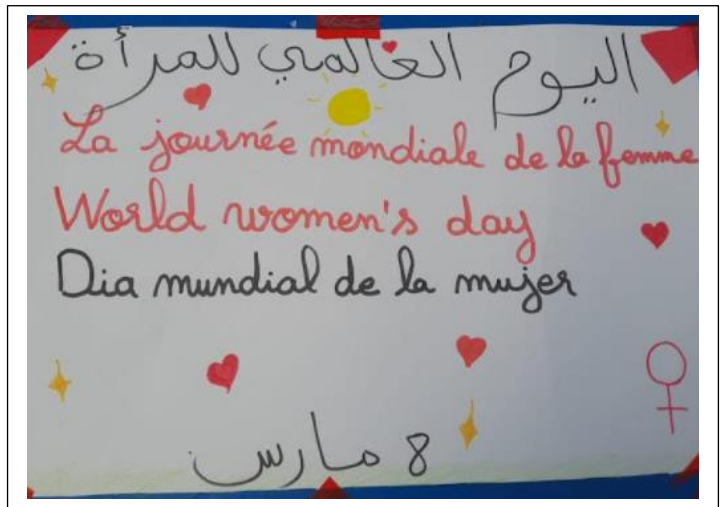 اليوم العالمي للمرأة
La journée mondiale de la femme
World women's day
Dia mundial de la mujer
8 مارس